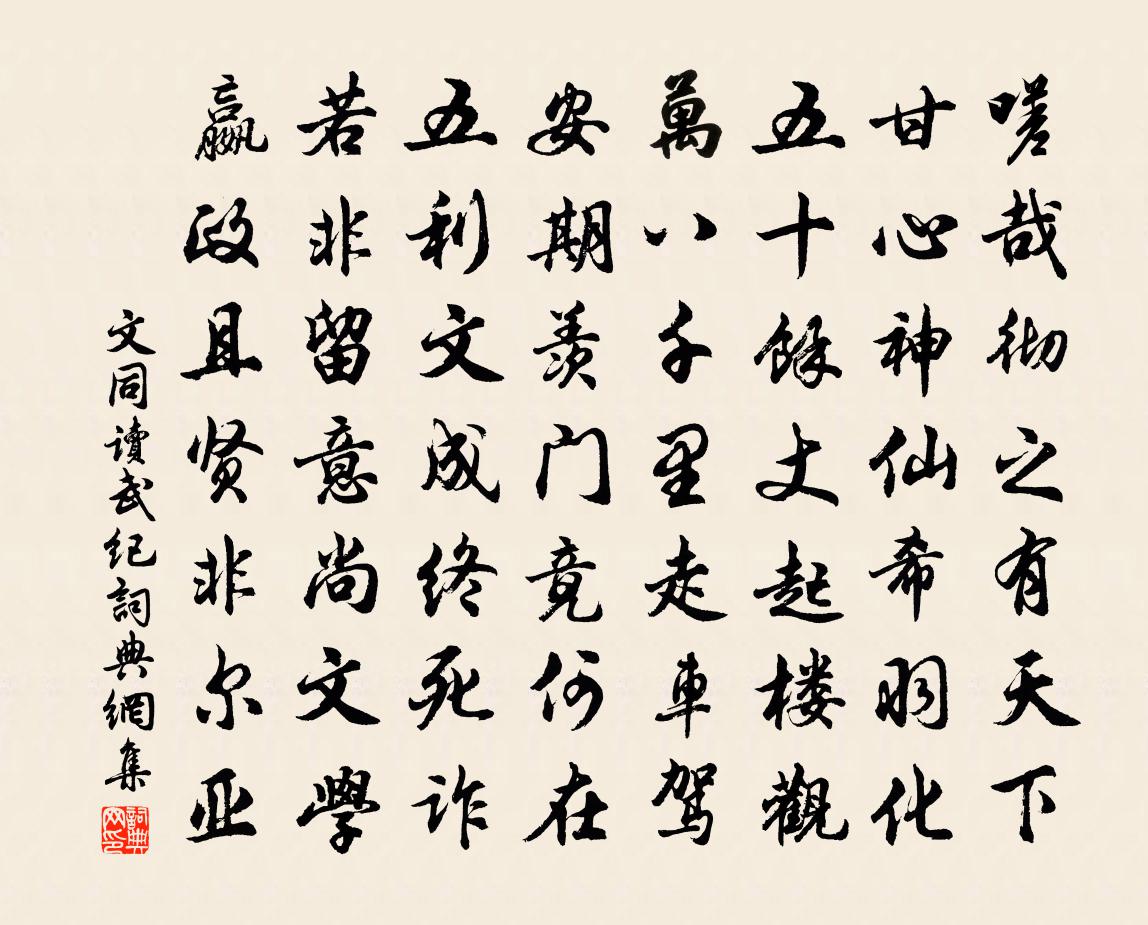 嗟哉彻之有天下
甘心神仙希羽化
五十餘丈起楼觀
萬八千里走車駕
安期羡门竟何在
五利文成终死诈
若非留意尚文學
嬴政且贤非尔亚
文同讀武纪詞典網集
詞典网印